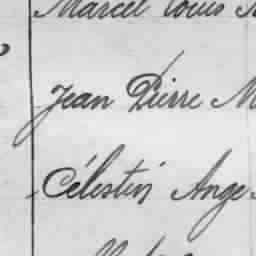 Marcel Louis
Jean Pierre M
Célestin Ange